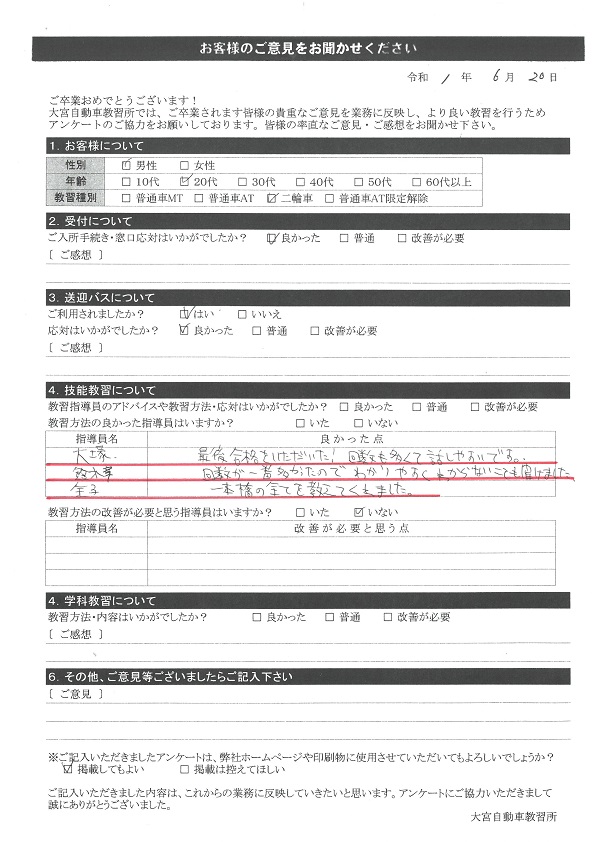 お客様のご意見をお聞かせください
令和 1 年 6 月 20 日
ご卒業おめでとうございます！
大宮自動車教習所では、ご卒業されます皆様の貴重なご意見を業務に反映し、より良い教習を行うため
アンケートのご協力をお願いしております。皆様の率直なご意見・ご感想をお聞かせ下さい。
1. お客様について
性別 ☑ 男性 □ 女性
年齢 □ 10代 ☑ 20代 □ 30代 □ 40代 □ 50代 □ 60代以上
教習種別 □ 普通車MT □ 普通車AT ☑ 二輪車 □ 普通車AT限定解除
2. 受付について
ご入所手続き・窓口応対はいかがでしたか？ ☑ 良かった □ 普通 □ 改善が必要
〔 ご感想 〕
3. 送迎バスについて
ご利用されましたか？ ☑ はい □ いいえ
応対はいかがでしたか？ ☑ 良かった □ 普通 □ 改善が必要
〔 ご感想 〕
4. 技能教習について
教習指導員のアドバイスや教習方法・応対はいかがでしたか？ □ 良かった □ 普通 □ 改善が必要
教習方法の良かった指導員はいますか？ □ いた □ いない
指導員名 良かった点
大塚 最後合格をいただいた！ 回数も多くて話しやすいです。
鈴木 回数が一番多かったのでわかりやすくわからないことも聞けました
金子 一本橋の全てを教えてくれました。
教習方法の改善が必要と思う指導員はいますか？ □ いた ☑ いない
指導員名 改善が必要と思う点
4. 学科教習について
教習方法・内容はいかがでしたか？ □ 良かった □ 普通 □ 改善が必要
〔 ご感想 〕
6. その他、ご意見等ございましたらご記入下さい
〔 ご意見 〕
※ご記入いただきましたアンケートは、弊社ホームページや印刷物に使用させていただいてもよろしいでしょうか？
☑ 掲載してもよい □ 掲載は控えてほしい
ご記入いただきました内容は、これからの業務に反映していきたいと思います。アンケートにご協力いただきまして
誠にありがとうございました。
大宮自動車教習所